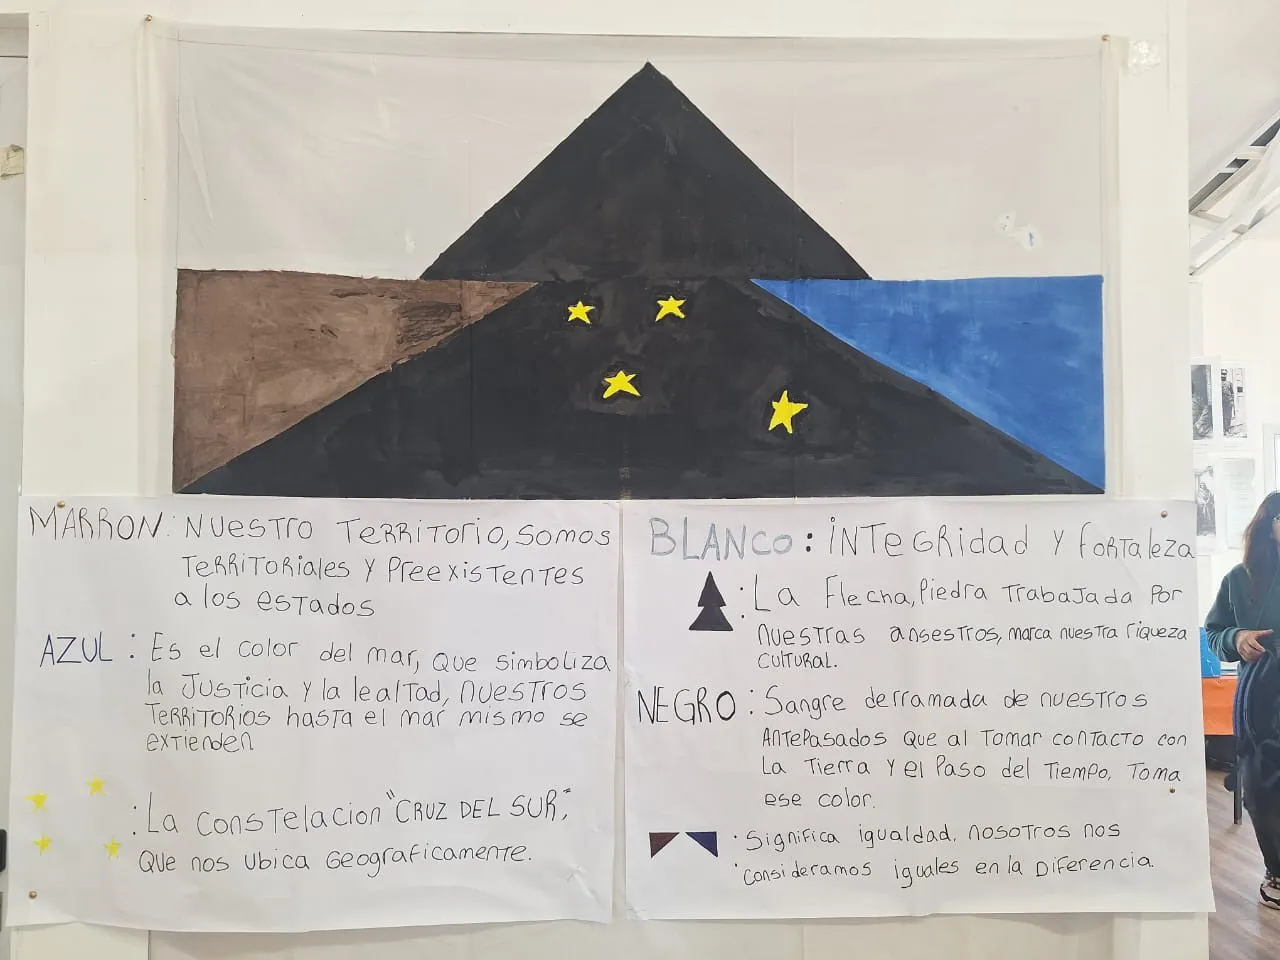 MARRON: NUESTRO TERRITORIO, SOMOS
TERRITORIALES Y PREEXISTENTES
a los estados
AZUL: Es el color del mar, que simboliza
la Justicia y la lealtad, nuestros
territorios hasta el mar mismo se
extienden
: La constelacion "CRUZ DEL SUR",
que nos ubica geograficamente.
BLANCO: iNTEGRidad y fortaleza
: La Flecha, Piedra Trabajada por
nuestras ansestros, marca nuestra riqueza
CULTURAL.
NEGRO: Sangre derramada de nuestros
Antepasados que al tomar contacto con
La Tierra y el Paso del Tiempo, Toma
ese color.
: Significa igualdad, nosotros nos
consideramos iguales en la Diferencia.